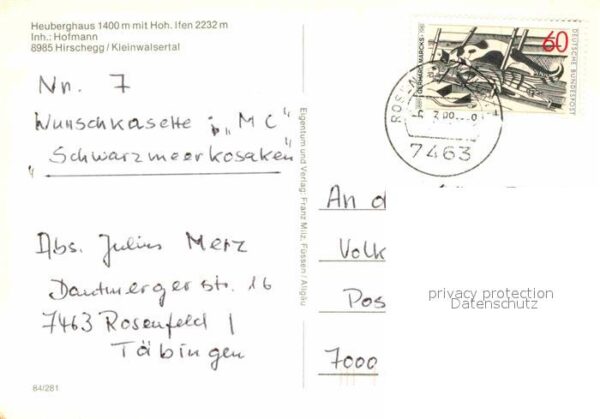 Heuberghaus 1400 m mit Hoh. Ifen 2232 m
Inh.: Hofmann
8985 Hirschegg / Kleinwalsertal
Nr. 7
Wunschkasette: "MC"
"Schwarzmeerkosaken"
Abs. Julius Merz
Dautmerger str. 16
7463 Rosenfeld 1
Täbingen
84/281
Eigentum und Verlag: Franz Milz, Füssen / Allgäu
60
DEUTSCHE BUNDESPOST
GERHARD MARCKS
7463
An d
Volk
Pos
7000
privacy protection
Datenschutz